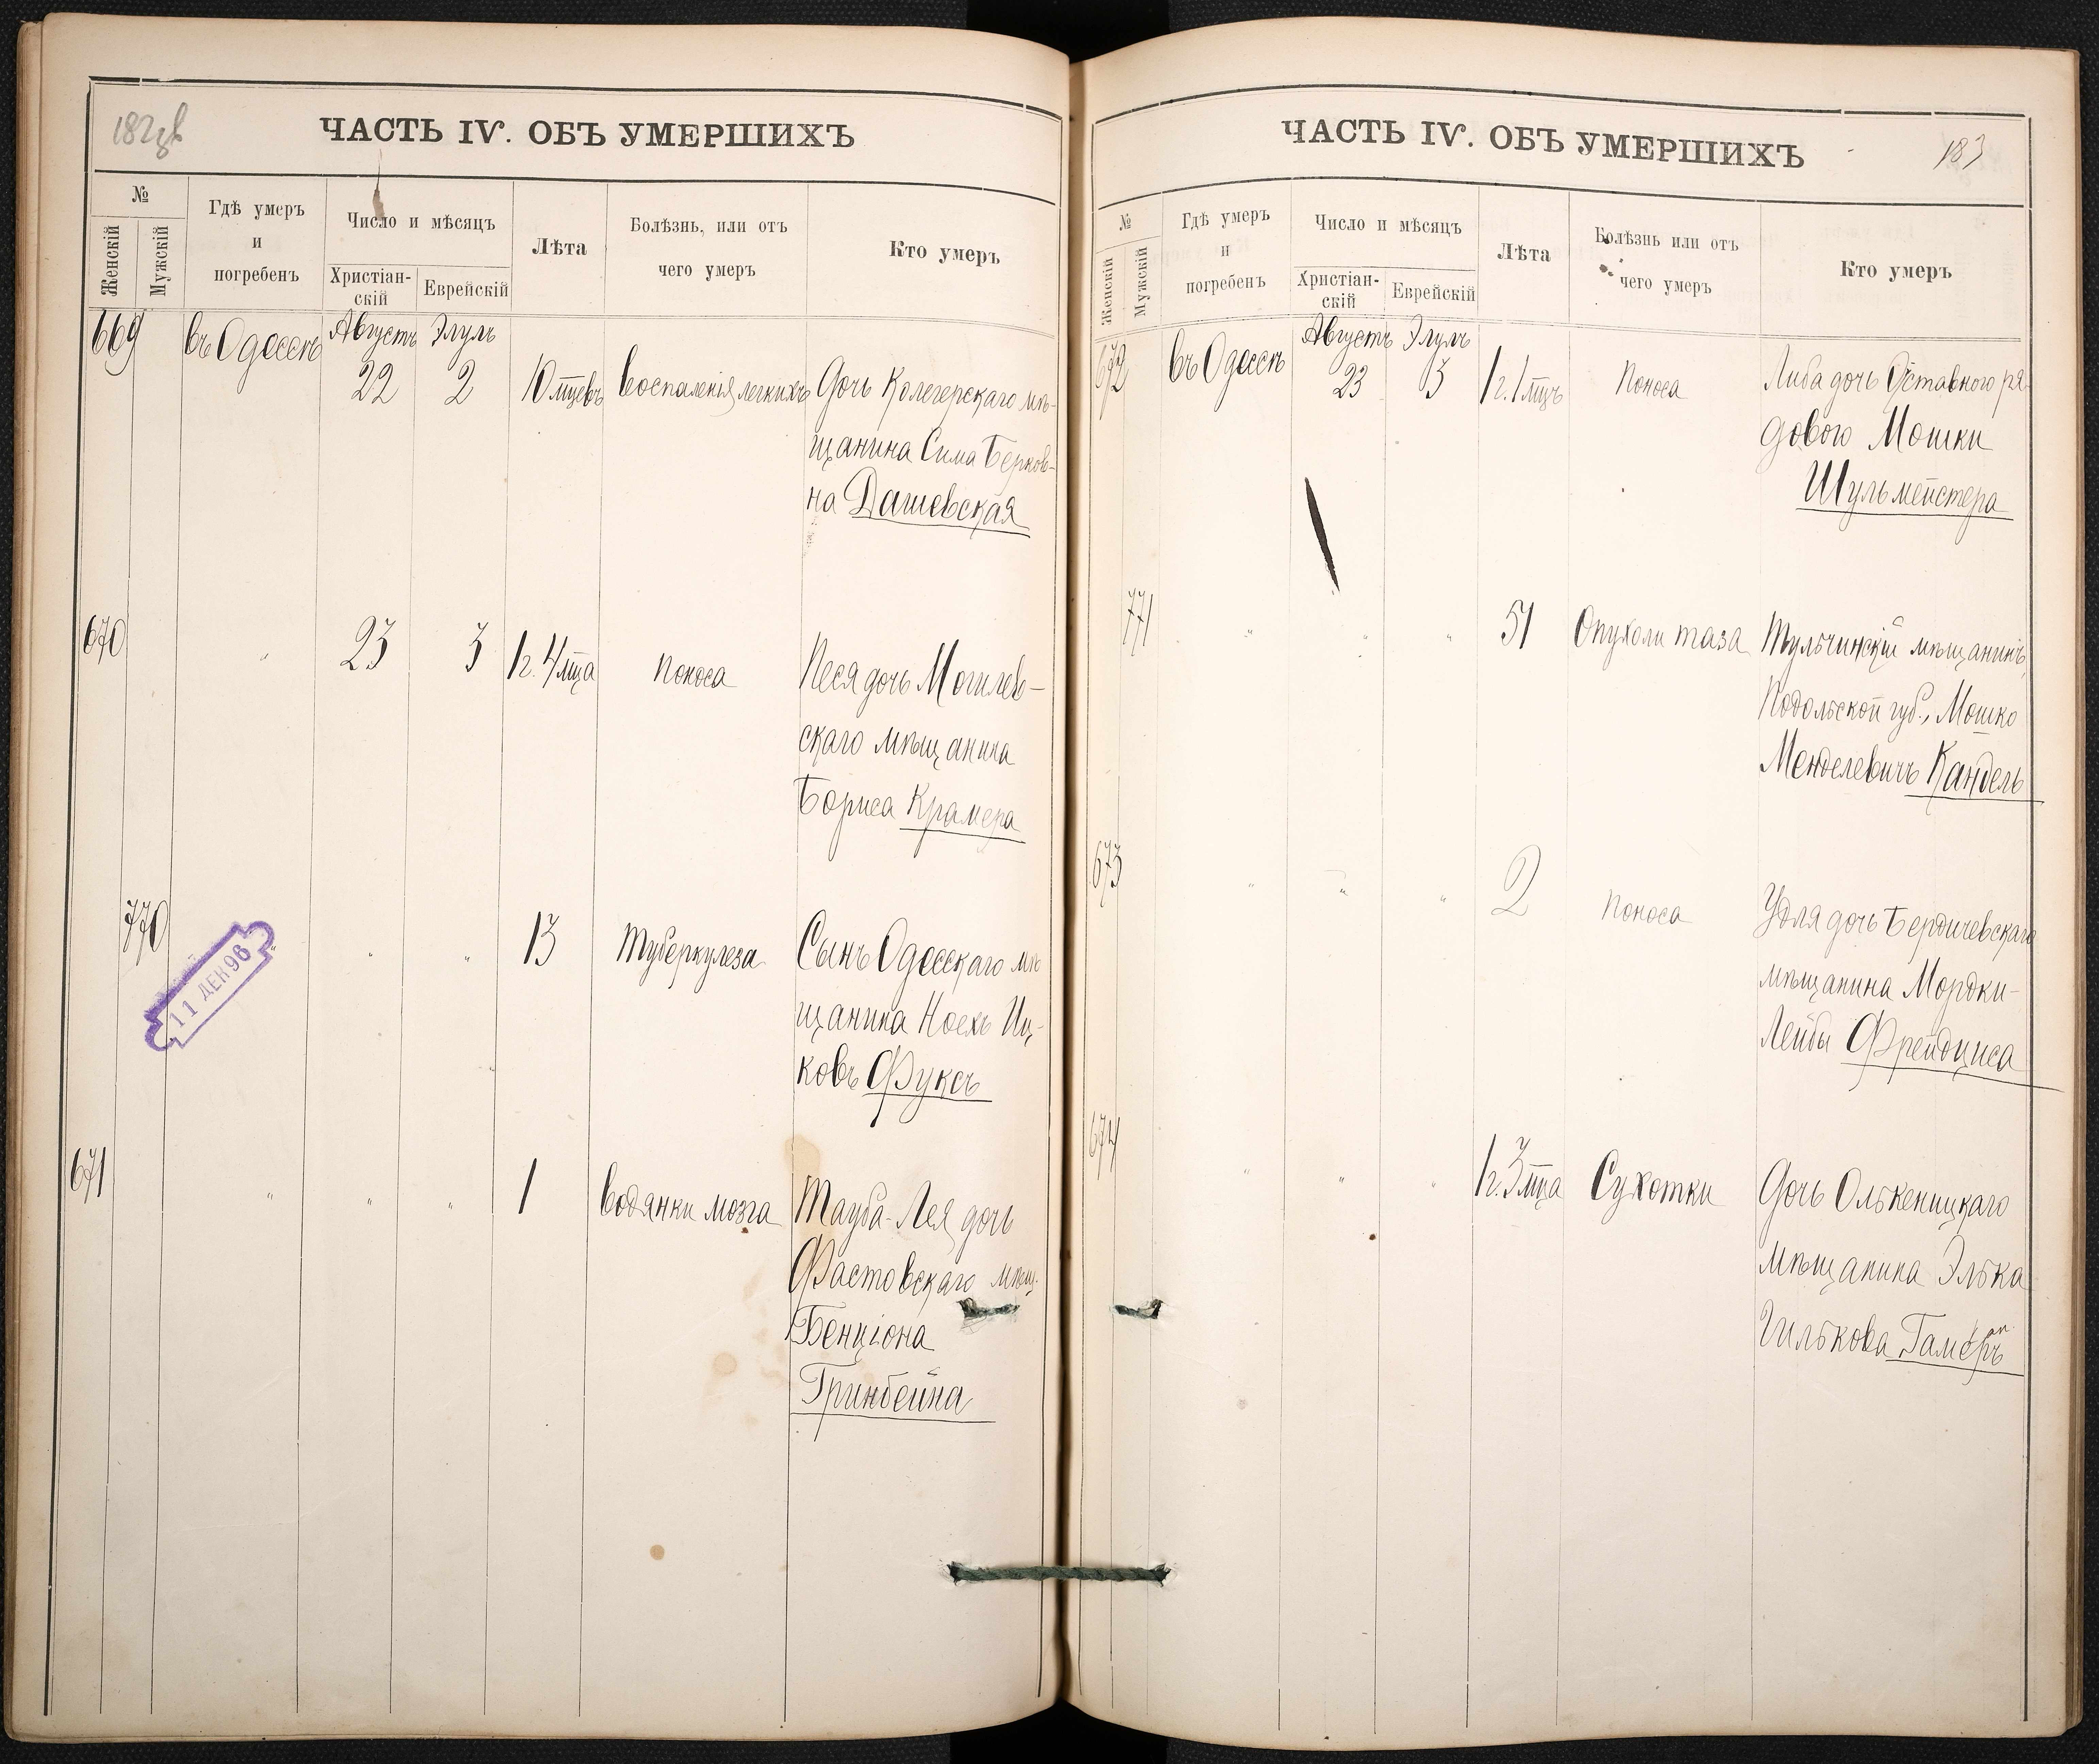 ЧАСТЬ IV. ОБЪ УМЕРШИХЪ
№
Женскій
Мужскій
Гдѣ умеръ
и
погребенъ
Число и мѣсяцъ
Христіан-
скій
Еврейскій
Лѣта
Болѣзнь, или отъ
чего умеръ
Кто умеръ
669 въ Одессѣ Августъ Элулъ
22 2 10 мцевъ воспаленія легкихъ Дочь Колегерскаго мѣ-
щанина Сима Берков-
на Дашевская
670 " 23 3 1 г. 4 мца поноса Песя дочь Могилев-
скаго мѣщанина
Бориса Крамера
770 " " " 13 туберкулеза Сынъ Одесскаго мѣ
щанина Ноехъ Иц-
ковъ Фуксъ
11 ДЕК 96
671 " " " 1 водянки мозга Тауба-Лея дочь
Фастовскаго мѣщ.
Бенціона
Гринбейна
ЧАСТЬ IV. ОБЪ УМЕРШИХЪ
183
№
Женскій
Мужскій
Гдѣ умеръ
и
погребенъ
Число и мѣсяцъ
Христіан-
скій
Еврейскій
Лѣта
Болѣзнь или отъ
чего умеръ
Кто умеръ
672 въ Одессѣ Августъ Элулъ
23 3 1 г. 1 мцъ поноса Либа дочь Отставного ря-
дового Мошки
Шульмейстера
771 " " " 51 Опухоли таза Тульчинскій мѣщанинъ,
Подольской губ., Мошко
Менделевичъ Кандель
673 " " " 2 поноса Удля дочь Бердичевскаго
мѣщанина Мордки-
Лейбы Фрейдциса
674 " " " 1 г. 3 мца Сухотки Дочь Олькеницкаго
мѣщанина Элька
Гилькова